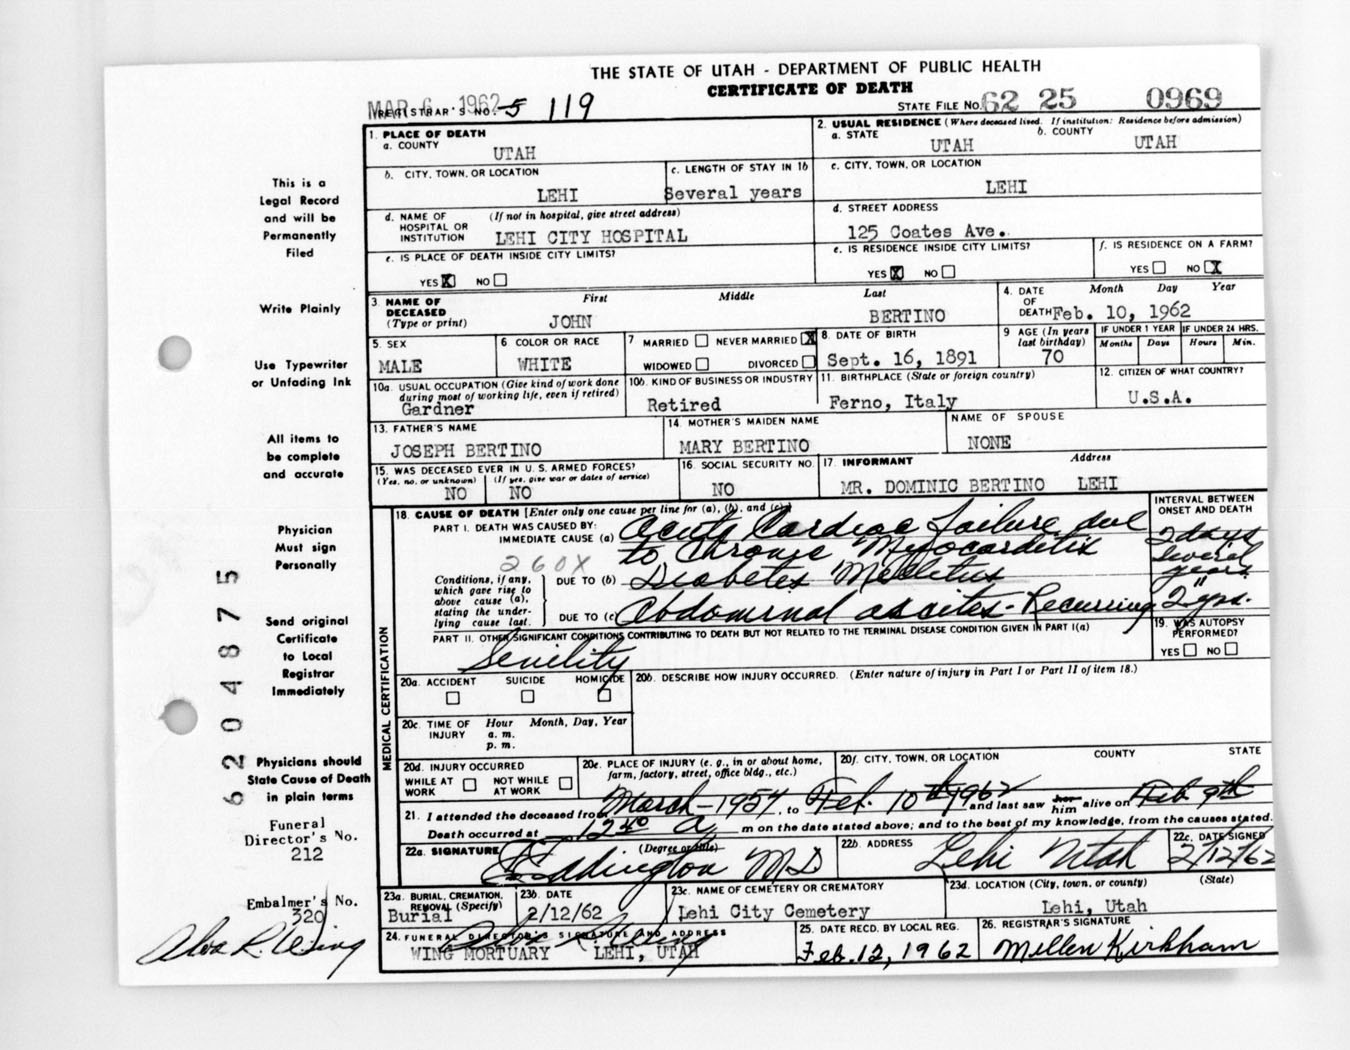 THE STATE OF UTAH - DEPARTMENT OF PUBLIC HEALTH
CERTIFICATE OF DEATH
MAR 6 1962
REGISTRAR'S NO. 5 119
STATE FILE NO. 62 25 0969
This is a
Legal Record
and will be
Permanently
Filed
Write Plainly
Use Typewriter
or Unfading Ink
All items to
be complete
and accurate
Physician
Must sign
Personally
Send original
Certificate
to Local
Registrar
Immediately
Physicians should
State Cause of Death
in plain terms
Funeral
Director's No.
212
Embalmer's No.
320
Alva R. Wing
6204875
1. PLACE OF DEATH
a. COUNTY
UTAH
2. USUAL RESIDENCE (Where deceased lived. If institution: Residence before admission)
a. STATE UTAH
b. COUNTY UTAH
b. CITY, TOWN, OR LOCATION
LEHI
c. LENGTH OF STAY IN 1b
Several years
c. CITY, TOWN, OR LOCATION
LEHI
d. NAME OF HOSPITAL OR INSTITUTION (If not in hospital, give street address)
LEHI CITY HOSPITAL
d. STREET ADDRESS
125 Coates Ave.
e. IS PLACE OF DEATH INSIDE CITY LIMITS?
YES X NO
e. IS RESIDENCE INSIDE CITY LIMITS?
YES X NO
f. IS RESIDENCE ON A FARM?
YES NO X
3. NAME OF DECEASED (Type or print)
First Middle Last
JOHN BERTINO
4. DATE OF DEATH Month Day Year
Feb. 10, 1962
5. SEX
MALE
6 COLOR OR RACE
WHITE
7 MARRIED NEVER MARRIED X
WIDOWED DIVORCED
8. DATE OF BIRTH
Sept. 16, 1891
9 AGE (In years last birthday)
70
IF UNDER 1 YEAR
Months Days
IF UNDER 24 HRS.
Hours Min.
10a. USUAL OCCUPATION (Give kind of work done during most of working life, even if retired)
Gardner
10b. KIND OF BUSINESS OR INDUSTRY
Retired
11. BIRTHPLACE (State or foreign country)
Ferno, Italy
12. CITIZEN OF WHAT COUNTRY?
U.S.A.
13. FATHER'S NAME
JOSEPH BERTINO
14. MOTHER'S MAIDEN NAME
MARY BERTINO
NAME OF SPOUSE
NONE
15. WAS DECEASED EVER IN U. S. ARMED FORCES?
(Yes, no. or unknown) (If yes, give war or dates of service)
NO NO
16. SOCIAL SECURITY NO.
NO
17. INFORMANT Address
MR. DOMINIC BERTINO LEHI
MEDICAL CERTIFICATION
18. CAUSE OF DEATH [Enter only one cause per line for (a), (b), and (c).]
PART I. DEATH WAS CAUSED BY:
IMMEDIATE CAUSE (a) Acute Cardiac failure due
to Chronic Myocarditis
260X
Conditions, if any, which gave rise to above cause (a), stating the underlying cause last.
DUE TO (b) Diabetes Mellitus
DUE TO (c) Abdominal ascites - Recurring
INTERVAL BETWEEN ONSET AND DEATH
2 days
Several
years
"
2 yrs.
PART II. OTHER SIGNIFICANT CONDITIONS CONTRIBUTING TO DEATH BUT NOT RELATED TO THE TERMINAL DISEASE CONDITION GIVEN IN PART I(a)
Senility
19. WAS AUTOPSY PERFORMED?
YES NO
20a. ACCIDENT SUICIDE HOMICIDE
20b. DESCRIBE HOW INJURY OCCURRED. (Enter nature of injury in Part I or Part II of item 18.)
20c. TIME OF INJURY Hour Month, Day, Year
a. m.
p. m.
20d. INJURY OCCURRED
WHILE AT WORK NOT WHILE AT WORK
20e. PLACE OF INJURY (e. g., in or about home, farm, factory, street, office bldg., etc.)
20f. CITY, TOWN, OR LOCATION COUNTY STATE
21. I attended the deceased from March - 1954, to Feb. 10th 1962 and last saw her him alive on Feb 9th
Death occurred at 12 40 A m on the date stated above; and to the best of my knowledge, from the causes stated.
22a. SIGNATURE (Degree or title)
Eddington MD
22b. ADDRESS
Lehi Utah
22c. DATE SIGNED
2/12/62
23a. BURIAL, CREMATION, REMOVAL (Specify)
Burial
23b. DATE
2/12/62
23c. NAME OF CEMETERY OR CREMATORY
Lehi City Cemetery
23d. LOCATION (City, town, or county) (State)
Lehi, Utah
24. FUNERAL DIRECTOR'S SIGNATURE AND ADDRESS
Alva R. Wing
WING MORTUARY LEHI, UTAH
25. DATE RECD. BY LOCAL REG.
Feb. 12, 1962
26. REGISTRAR'S SIGNATURE
Millen Kirkham